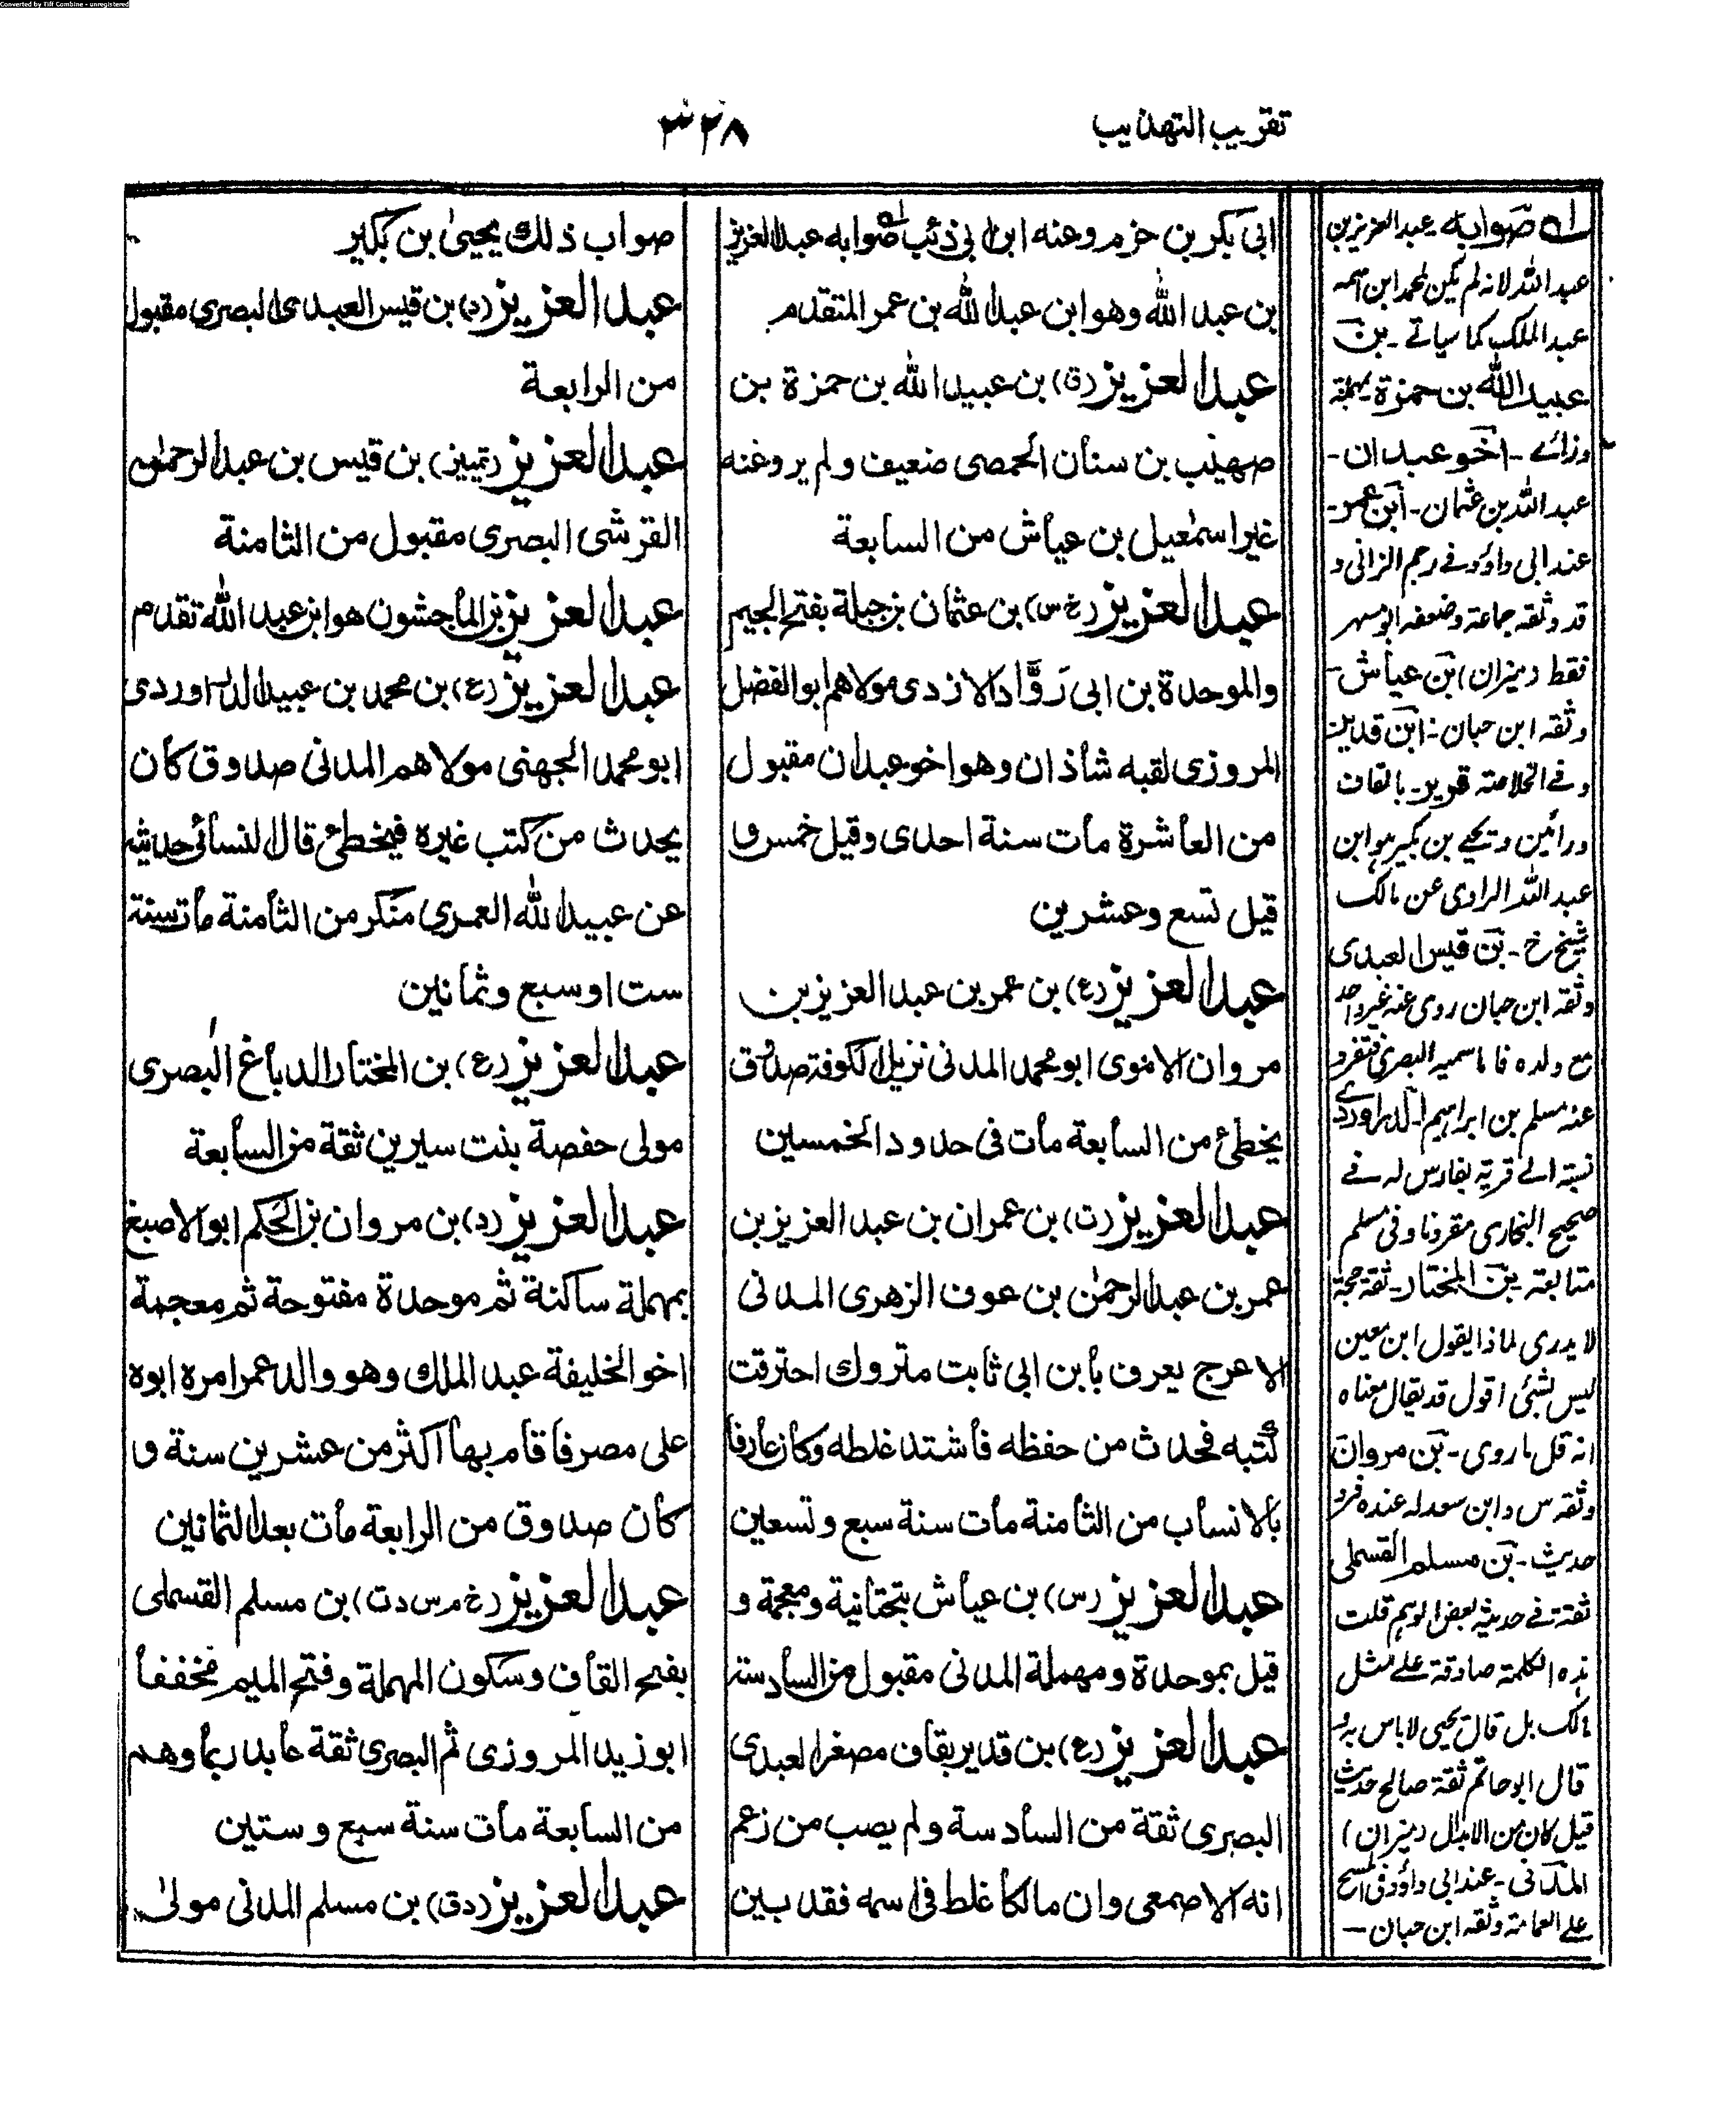 Converted by Tiff Combine - unregistered
تقريب التهذيب
٣٢٨
ابى بكر بن حزم وعنه ابن ابى ذئب صوابه عبد العزيز
بن عبد الله وهو ابن عبد الله بن عمر المتقدم
عبد العزيز (ق) بن عبيد الله بن حمزة بن
صهيب بن سنان الحمصى ضعيف ولم يرو عنه
غير اسمعيل بن عياش من السابعة
عبد العزيز (خ س) بن عثمان بن جبلة بفتح الجيم
والموحدة بن ابى روّاد الازدى مولاهم ابو الفضل
المروزى لقبه شاذان وهو اخو عبدان مقبول
من العاشرة مات سنة احدى وقيل خمس و
قيل تسع وعشرين
عبد العزيز (ع) بن عمر بن عبد العزيز بن
مروان الاموى ابو محمد المدنى نزيل الكوفة صدوق
يخطئ من السابعة مات فى حدود الخمسين
عبد العزيز (ت) بن عمران بن عبد العزيز بن
عمر بن عبد الرحمٰن بن عوف الزهرى المدنى
الاعرج يعرف بابن ابى ثابت متروك احترقت
كتبه فحدث من حفظه فاشتد غلطه وكان عارفا
بالانساب من الثامنة مات سنة سبع وتسعين
عبد العزيز (س) بن عياش بتحتانية ومعجمة و
قيل بموحدة ومهملة المدنى مقبول من السادسة
عبد العزيز (ع) بن قدير بقاف مصغر العبدى
البصرى ثقة من السادسة ولم يصب من زعم
انه الاصمعى وان مالكا غلط فى اسمه فقد بين
صواب ذلك يحيىٰ بن بكير
عبد العزيز (د) بن قيس العبدى البصرى مقبول
من الرابعة
عبد العزيز (تمييز) بن قيس بن عبد الرحمٰن
القرشى البصرى مقبول من الثامنة
عبد العزيز بن الماجشون هو ابن عبد الله تقدم
عبد العزيز (ع) بن محمد بن عبيد الدراوردى
ابو محمد الجهنى مولاهم المدنى صدوق كان
يحدث من كتب غيره فيخطئ قال النسائى حديثه
عن عبيد الله العمرى منكر من الثامنة مات سنة
ست او سبع وثمانين
عبد العزيز (ع) بن المختار الدباغ البصرى
مولى حفصة بنت سيرين ثقة من السابعة
عبد العزيز (د) بن مروان بن الحكم ابو الاصبغ
بمهملة ساكنة ثم موحدة مفتوحة ثم معجمة
اخو الخليفة عبد الملك وهو والد عمر امره ابوه
على مصر فاقام بها اكثر من عشرين سنة و
كان صدوق من الرابعة مات بعد الثمانين
عبد العزيز (خ م س د ت) بن مسلم القسملى
بفتح القاف وسكون المهملة وفتح الميم مخففا
ابو زيد المروزى ثم البصرى ثقة عابد ربما وهم
من السابعة مات سنة سبع وستين
عبد العزيز (دق) بن مسلم المدنى مولىٰ
له صوابه عبد العزيز بن
عبد الله لانه لم يكن لمحمد ابن اسمه
عبد الملك كما سياتے ـ بن
عبيد الله بن حمزة بمهملة
وزاے ـ اخو عبدان ـ
عبد الله بن عثمان ـ ابن عمر ـ
عند ابى داؤد فے رجم الزانى و
قد وثقه جماعة وضعفه ابو مسهر
فقط (ميزان) بن عياش ـ
وثقه ابن حبان ـ ابن قدير
وفے الخلاصة قرير ـ بالقاف
ورائين ويحيے بن بكير هو ابن
عبد الله الراوى عن مالك
شيخ خ ـ بن قيس العبدى
وثقه ابن حبان روى عنه غير واحد
مع ولده فاما سميه البصرى فتفرد
عنه مسلم بن ابراهيم ـ الدراوردے
نسبة الے قرية بفارس له فے
صحيح البخارى مقرونا وفى مسلم
متابعة ـ بن المختار ـ ثقة حجة
لا يدرى لماذا يقول ابن معين
ليس بشئ اقول قد يقال معناه
انه قل ما روى ـ بن مروان
وثقه س وابن سعد له عنده فرد
حديث ـ بن مسلم القسملى
ثقة فے حديثه بعض الوهم قلت
هذه الكلمة صادقة علے مثل
مالك بل قال يحيى لا باس به و
قال ابو حاتم ثقة صالح حديث
قيل كان من الابدال (ميزان)
المدنى ـ عند ابى داؤد فى المسح
علے العمامة وثقه ابن حبان ـ